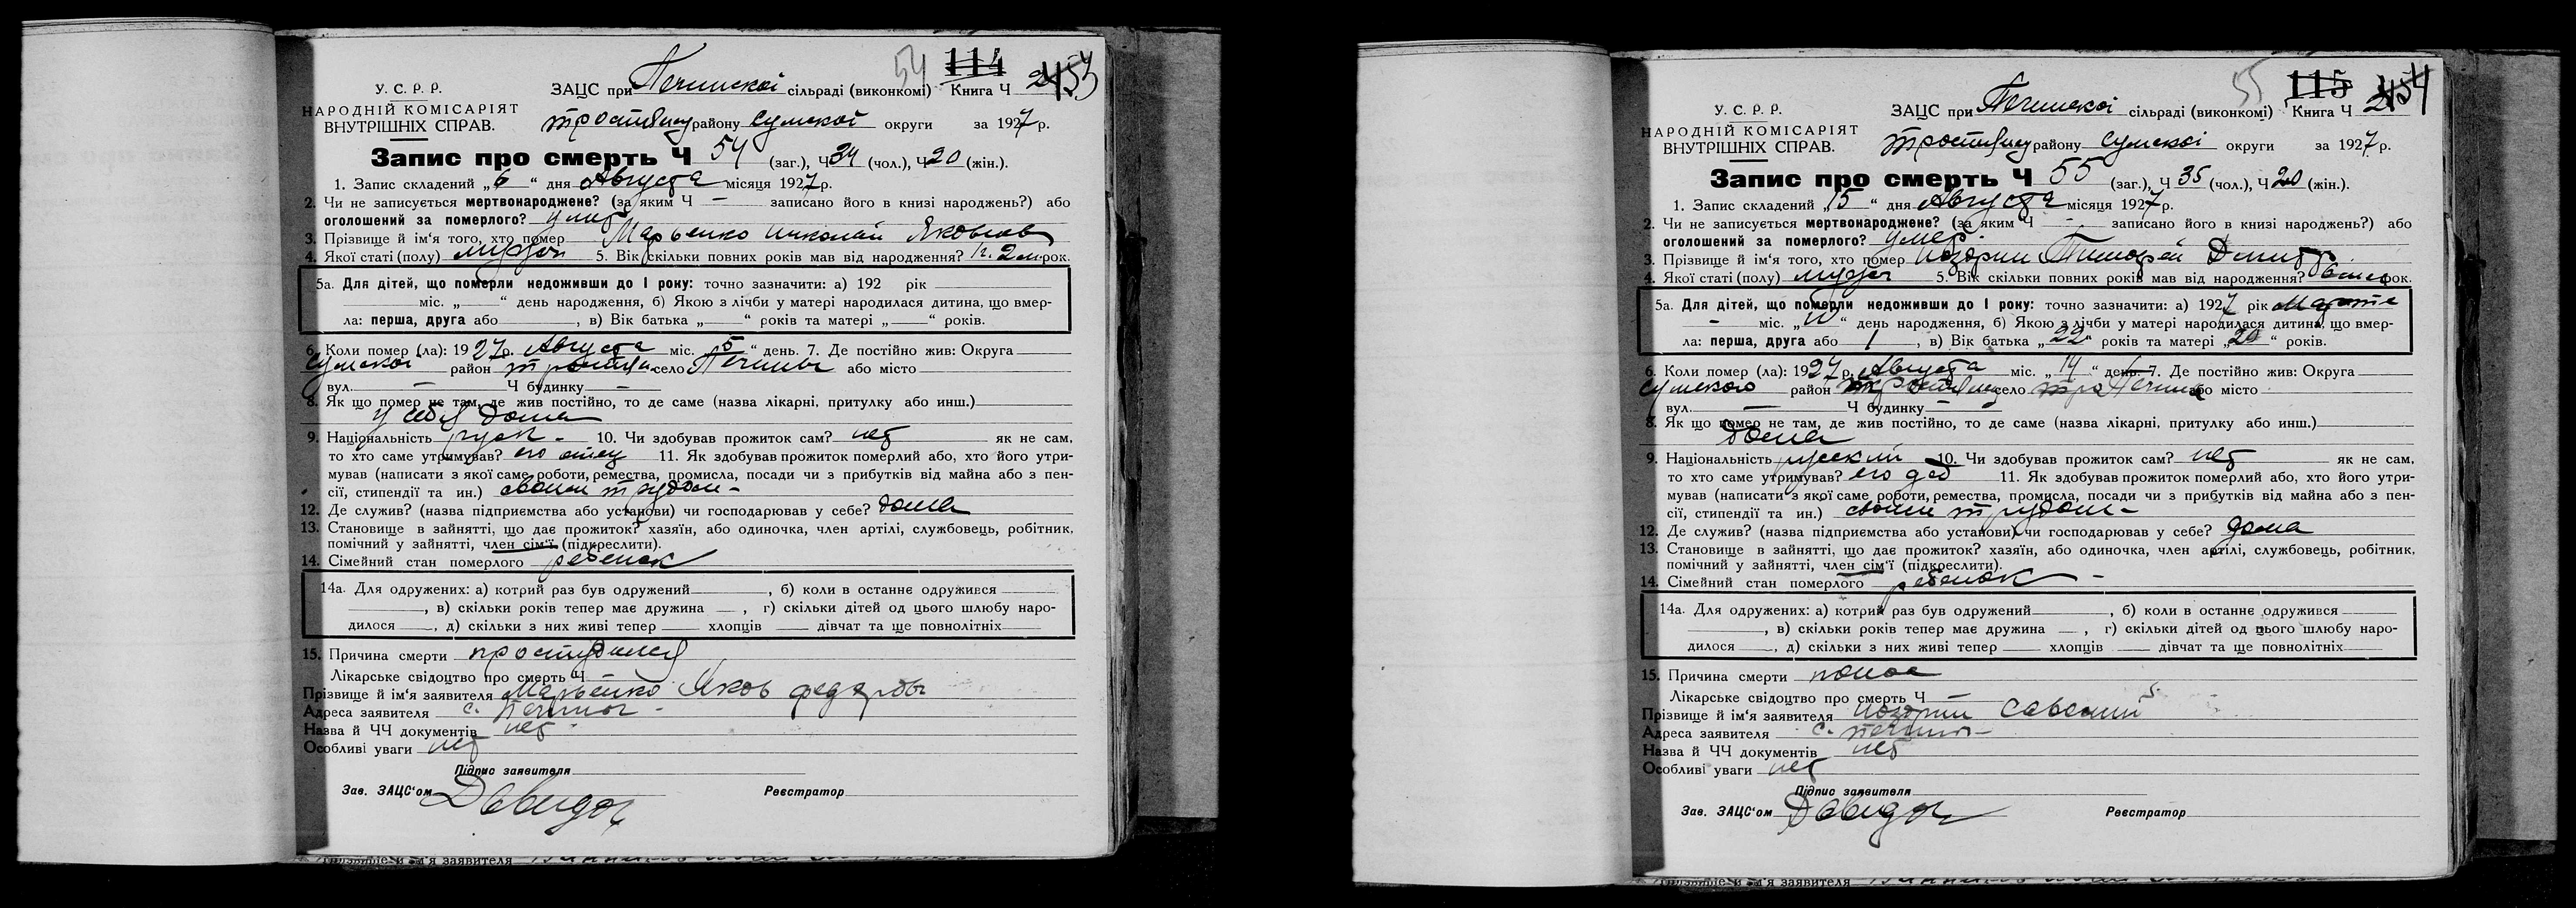 54 114 2453
У. С. Р. Р.
НАРОДНІЙ КОМІСАРІЯТ
ВНУТРІШНІХ СПРАВ.
ЗАЦС при Печинской сільраді (виконкомі) Книга Ч
району Сумской округи за 1927 р.
Запис про смерть Ч 54 (заг.), Ч 34 (чол.), Ч 20 (жін.).
1. Запис складений „6“ дня Августа місяця 1927 р.
2. Чи не записується мертвонароджене? (за яким Ч — записано його в книзі народжень?) або
оголошений за померлого? умер
3. Прізвище й ім‘я того, хто помер Марченко Николай Яковлев
4. Якої статі (полу) 5. Вік скільки повних років мав від народження? рок.
5а. Для дітей, що померли недоживши до 1 року: точно зазначити: а) 192 рік
міс. „ “ день народження, б) Якою з лічби у матері народилася дитина, що вмер-
ла: перша, друга або , в) Вік батька „ “ років та матері „ “ років.
6. Коли помер (ла): 1927 р. Августа міс. „5“ день. 7. Де постійно жив: Округа
Сумской район село Печины або місто
вул. — Ч будинку —
8. Як що помер не там, де жив постійно, то де саме (назва лікарні, притулку або инш.)
у себя дома
9. Національність руск — 10. Чи здобував прожиток сам? нет як не сам,
то хто саме утримував? его отец 11. Як здобував прожиток померлий або, хто його утри-
мував (написати з якої саме роботи, ремества, промисла, посади чи з прибутків від майна або з пен-
сії, стипендії та ин.) своим трудом —
12. Де служив? (назва підприємства або установи) чи господарював у себе? дома
13. Становище в зайнятті, що дає прожиток? хазяїн, або одиночка, член артілі, службовець, робітник,
помічний у зайнятті, член сім‘ї (підкреслити).
14. Сімейний стан померлого ребенок
14а. Для одружених: а) котрий раз був одружений , б) коли в останнє одружився
, в) скільки років тепер має дружина — , г) скільки дітей од цього шлюбу наро-
дилося , д) скільки з них живі тепер хлопців дівчат та ще повнолітніх
15. Причина смерти простудился
Лікарське свідоцтво про смерть Ч
Прізвище й ім‘я заявителя Марченко Яков федоров
Адреса заявителя с. Печины —
Назва й ЧЧ документів нет
Особливі уваги нет
Підпис заявителя
Зав. ЗАЦС‘ом Давидов Реєстратор
55 115 2454
У. С. Р. Р.
НАРОДНІЙ КОМІСАРІЯТ
ВНУТРІШНІХ СПРАВ.
ЗАЦС при Печинской сільраді (виконкомі) Книга Ч
району Сумскої округи за 1927 р.
Запис про смерть Ч 55 (заг.), Ч 35 (чол.), Ч 20 (жін.).
1. Запис складений „15“ дня Августа місяця 1927 р.
2. Чи не записується мертвонароджене? (за яким Ч — записано його в книзі народжень?) або
оголошений за померлого? умер.
3. Прізвище й ім‘я того, хто помер Тимофей Дмитр.
4. Якої статі (полу) 5. Вік скільки повних років мав від народження? рок.
5а. Для дітей, що померли недоживши до 1 року: точно зазначити: а) 1927 рік Марта
— міс. „ “ день народження, б) Якою з лічби у матері народилася дитина, що вмер-
ла: перша, друга або 1 , в) Вік батька „22“ років та матері „20“ років.
6. Коли помер (ла): 1927 р. Августа міс. „14“ день. 7. Де постійно жив: Округа
Сумского район село Печины або місто
вул. — Ч будинку —
8. Як що помер не там, де жив постійно, то де саме (назва лікарні, притулку або инш.)
дома
9. Національність русский 10. Чи здобував прожиток сам? нет як не сам,
то хто саме утримував? его дед 11. Як здобував прожиток померлий або, хто його утри-
мував (написати з якої саме роботи, ремества, промисла, посади чи з прибутків від майна або з пен-
сії, стипендії та ин.) своим трудом —
12. Де служив? (назва підприємства або установи) чи господарював у себе? дома
13. Становище в зайнятті, що дає прожиток? хазяїн, або одиночка, член артілі, службовець, робітник,
помічний у зайнятті, член сім‘ї (підкреслити).
14. Сімейний стан померлого ребенок —
14а. Для одружених: а) котрий раз був одружений , б) коли в останнє одружився
, в) скільки років тепер має дружина — , г) скільки дітей од цього шлюбу наро-
дилося , д) скільки з них живі тепер хлопців дівчат та ще повнолітніх
15. Причина смерти понос
Лікарське свідоцтво про смерть Ч —
Прізвище й ім‘я заявителя
Адреса заявителя с. Печины —
Назва й ЧЧ документів нет
Особливі уваги нет
Підпис заявителя
Зав. ЗАЦС‘ом Давидов Реєстратор